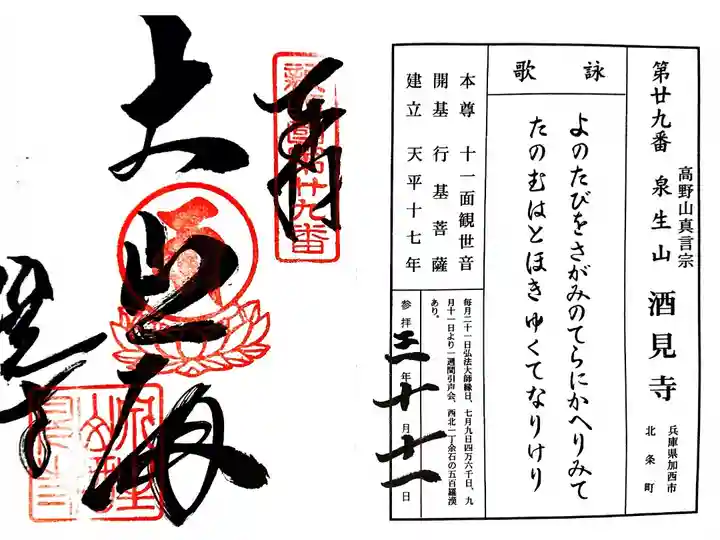 第廿九番 高野山真言宗 泉生山 酒見寺
兵庫県加西市
北条町
詠歌
よのたびをさがみのてらにかへりみて
たのむはとほきゆくてなりけり
本尊 十一面観世音
開基 行基菩薩
建立 天平十七年
毎月二十一日弘法大師縁日、七月九日四万六千日、九
月十一日より一週間引声会、西北一丁余石の五百羅漢
あり。
参拝 三十年十月十一日
第廿九番
奉拝
大悲殿